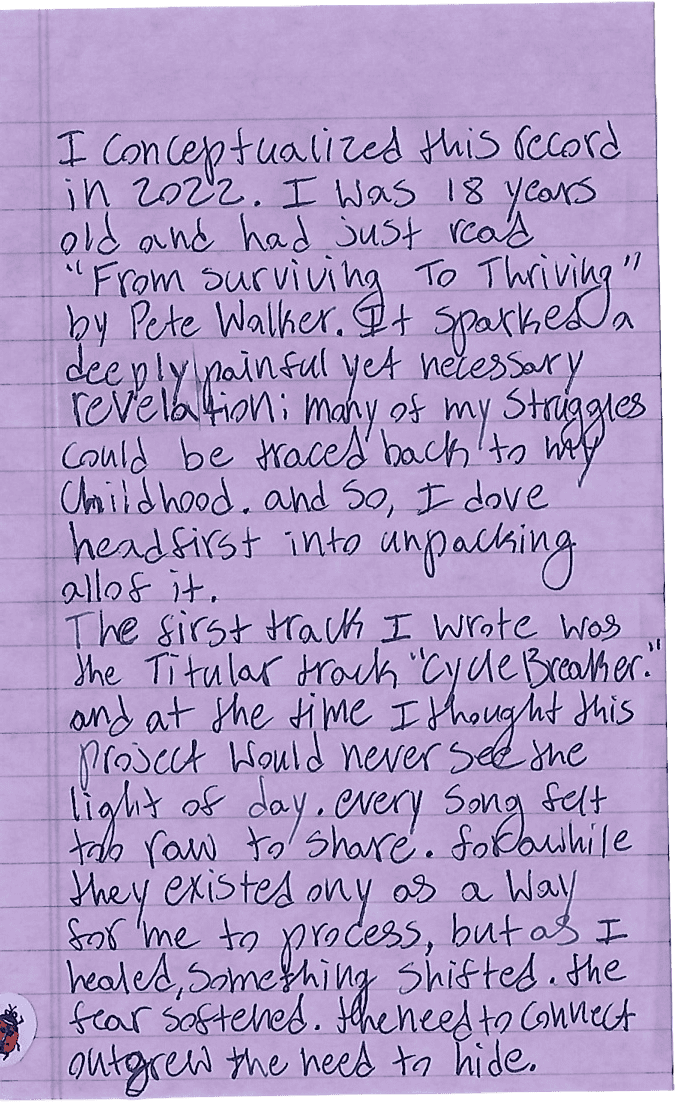 I conceptualized this record
in 2022. I was 18 years
old and had just read
"From surviving To Thriving"
by Pete Walker. It sparked a
deeply painful yet necessary
revelation: many of my struggles
could be traced back to my
Childhood. and So, I dove
headfirst into unpacking
all of it.
The first track I wrote was
the Titular track "Cycle Breaker."
and at the time I thought this
project would never see the
light of day. every song felt
too raw to share. for awhile
they existed ony as a way
for me to process, but as I
healed, something shifted. the
fear softened. the need to connect
outgrew the need to hide.